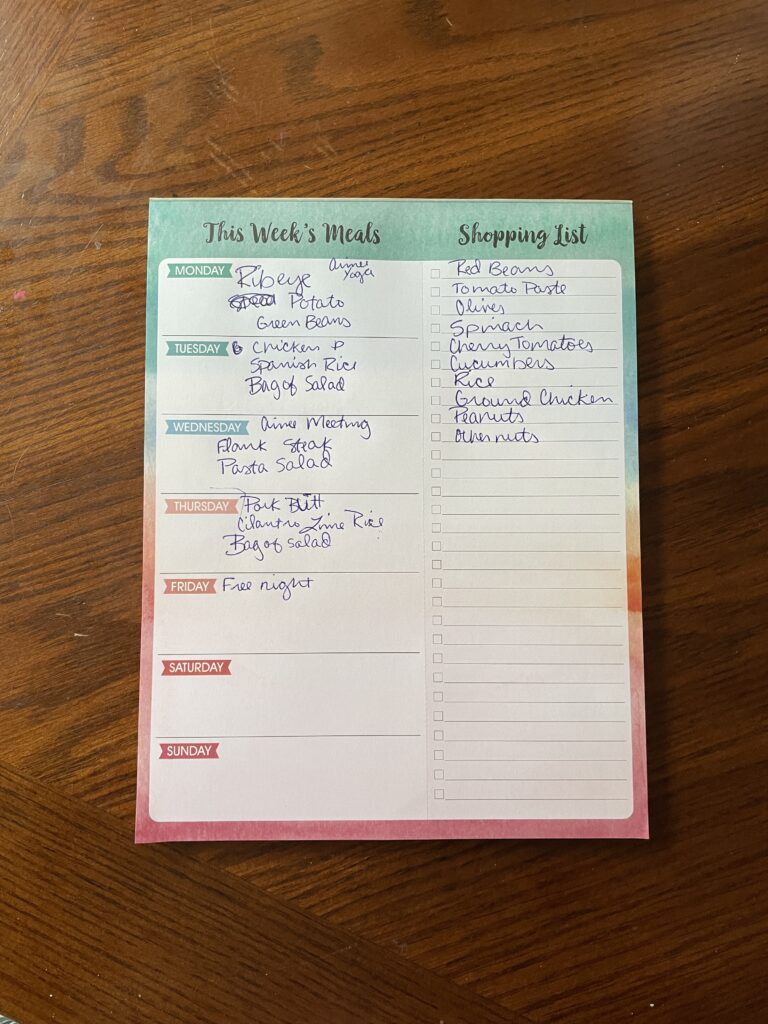 This Week's Meals
MONDAY Ribeye Aimee Yoga
Potato
Green Beans
TUESDAY Chicken
Spanish Rice
Bag of Salad
WEDNESDAY Aimee Meeting
Flank Steak
Pasta Salad
THURSDAY Pork Butt
Cilantro Lime Rice
Bag of Salad
FRIDAY Free night
SATURDAY
SUNDAY
Shopping List
Red Beans
Tomato Paste
Olives
Spinach
Cherry Tomatoes
Cucumbers
Rice
Ground Chicken
Peanuts
Other nuts